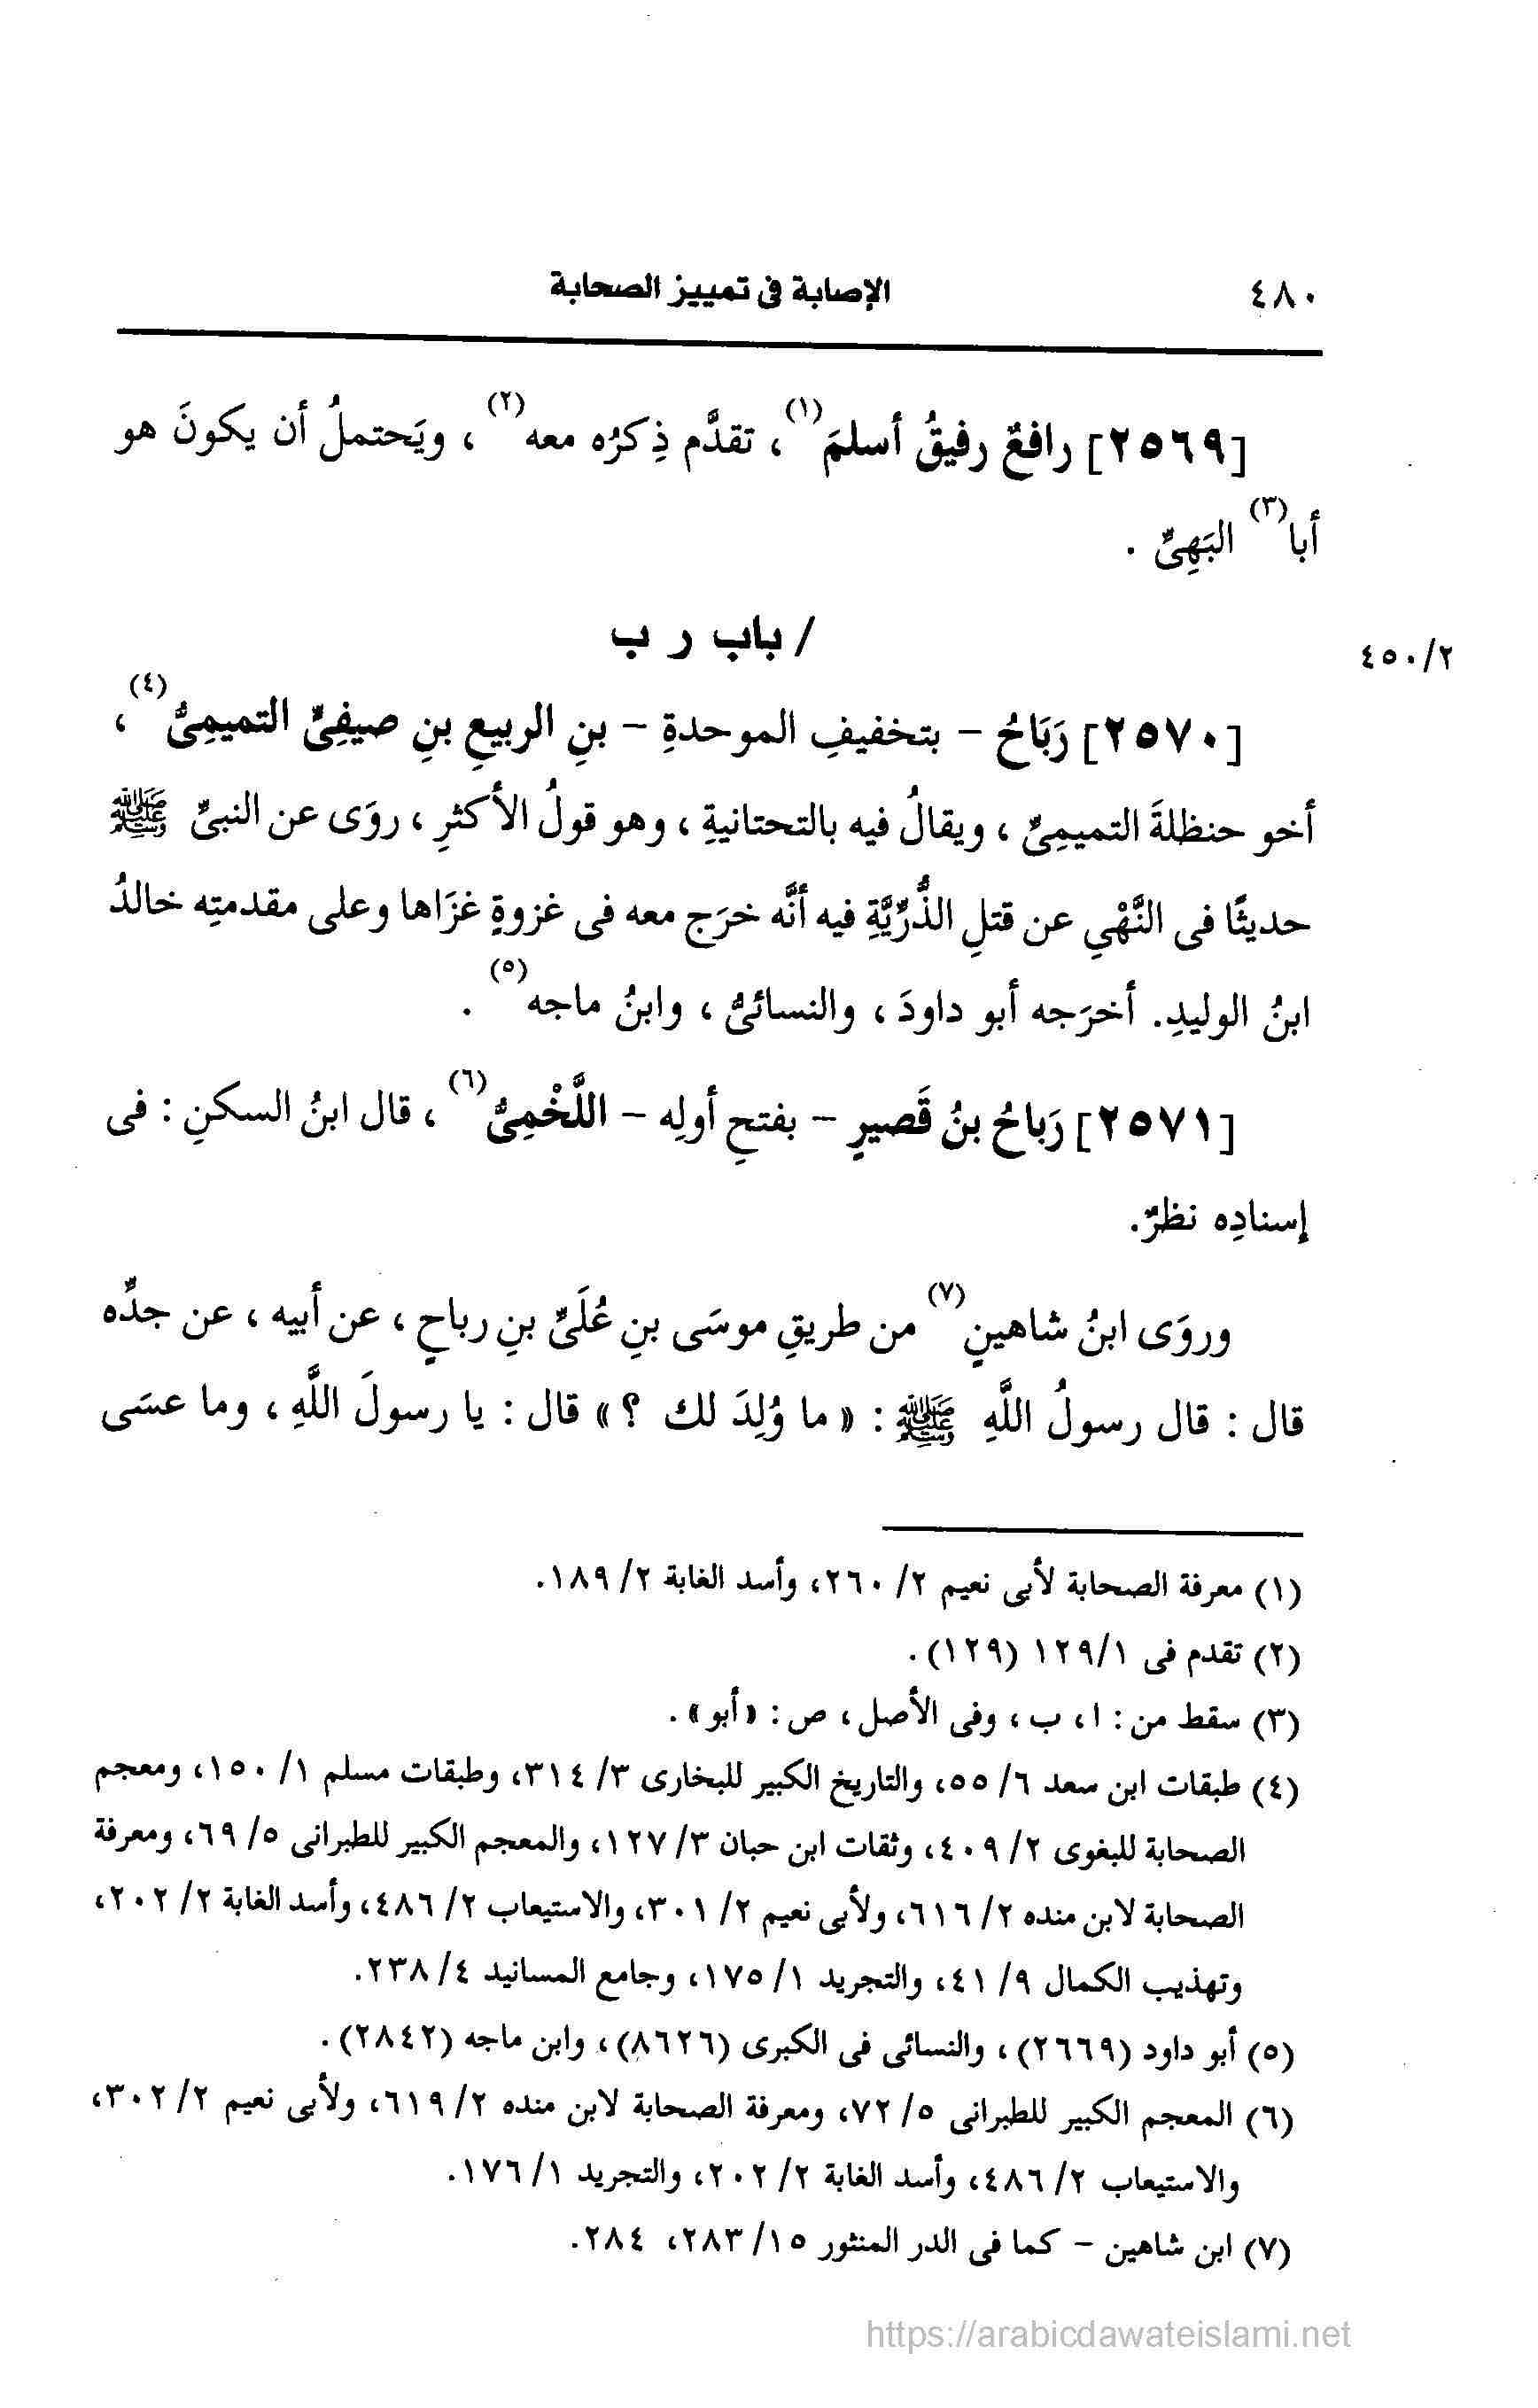 ٤٨٠
الإصابة فى تمييز الصحابة
[٢٥٦٩] رافعٌ رفيقُ أسلمَ(١)، تقدَّم ذِكرُه معه(٢)، ويَحتملُ أن يكونَ هو
أبا(٣) البَهِىِّ .
٤٥٠/٢
/ باب ر ب
[٢٥٧٠] رَبَاحُ – بتخفيفِ الموحدةِ – بنِ الربيعِ بنِ صيفِىِّ التميمِىُّ(٤)،
أخو حنظلةَ التميمِىِّ ، ويقالُ فيه بالتحتانيةِ ، وهو قولُ الأكثرِ ، روَى عن النبىِّ ﷺ
حديثًا فى النَّهْيِ عن قتلِ الذُّرِّيَّةِ فيه أنَّه خرَج معه فى غزوةٍ غزَاها وعلى مقدمتِه خالدُ
ابنُ الوليدِ. أخرَجه أبو داودَ ، والنسائىُّ ، وابنُ ماجه(٥) .
[٢٥٧١] رَباحُ بنُ قَصيرٍ – بفتحِ أولِه – اللَّخْمِىُّ(٦) ، قال ابنُ السكنِ : فى
إسنادِه نظرٌ.
وروَى ابنُ شاهينٍ(٧) من طريقِ موسَى بنِ عُلَىِّ بنِ رباحٍ ، عن أبيه ، عن جدِّه
قال : قال رسولُ اللَّهِ ﷺ : « ما وُلِدَ لك ؟ » قال : يا رسولَ اللَّهِ ، وما عسَى
(١) معرفة الصحابة لأبى نعيم ٢/ ٢٦٠، وأسد الغابة ٢/ ١٨٩.
(٢) تقدم فى ١/ ١٢٩ (١٢٩) .
(٣) سقط من : ا، ب ، وفى الأصل ، ص : « أبو » .
(٤) طبقات ابن سعد ٦/ ٥٥، والتاريخ الكبير للبخارى ٣/ ٣١٤، وطبقات مسلم ١/ ١٥٠، ومعجم
الصحابة للبغوى ٢/ ٤٠٩، وثقات ابن حبان ٣/ ١٢٧، والمعجم الكبير للطبرانى ٥/ ٦٩، ومعرفة
الصحابة لابن منده ٢/ ٦١٦، ولأبى نعيم ٢/ ٣٠١، والاستيعاب ٢/ ٤٨٦، وأسد الغابة ٢/ ٢٠٢،
وتهذيب الكمال ٩/ ٤١، والتجريد ١/ ١٧٥، وجامع المسانيد ٤/ ٢٣٨.
(٥) أبو داود (٢٦٦٩) ، والنسائى فى الكبرى (٨٦٢٦) ، وابن ماجه (٢٨٤٢) .
(٦) المعجم الكبير للطبرانى ٥/ ٧٢، ومعرفة الصحابة لابن منده ٢/ ٦١٩، ولأبى نعيم ٢/ ٣٠٢،
والاستيعاب ٢/ ٤٨٦، وأسد الغابة ٢/ ٢٠٢، والتجريد ١/ ١٧٦.
(٧) ابن شاهين – كما فى الدر المنثور ١٥/ ٢٨٣، ٢٨٤.
https://arabicdawateislami.net